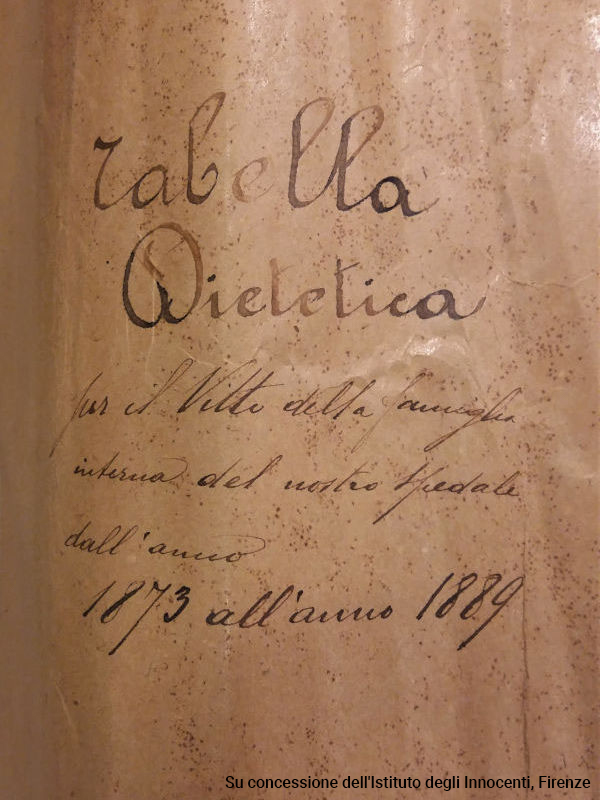 Tabella
Dietetica
per il Vitto della famiglia
interna del nostro Spedale
dall'anno
1873 all'anno 1889
Su concessione dell'Istituto degli Innocenti, Firenze